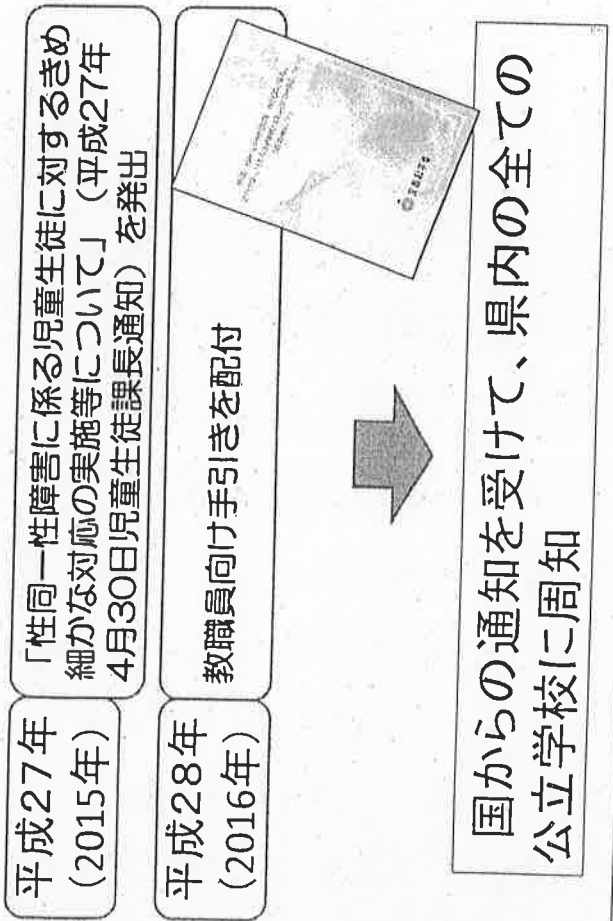 平成27年
(2015年)
「性同一性障害に係る児童生徒に対するきめ
細かな対応の実施等について」（平成27年
4月30日児童生徒課長通知）を発出
平成28年
(2016年)
教職員向け手引きを配付
国からの通知を受けて、県内の全ての
公立学校に周知